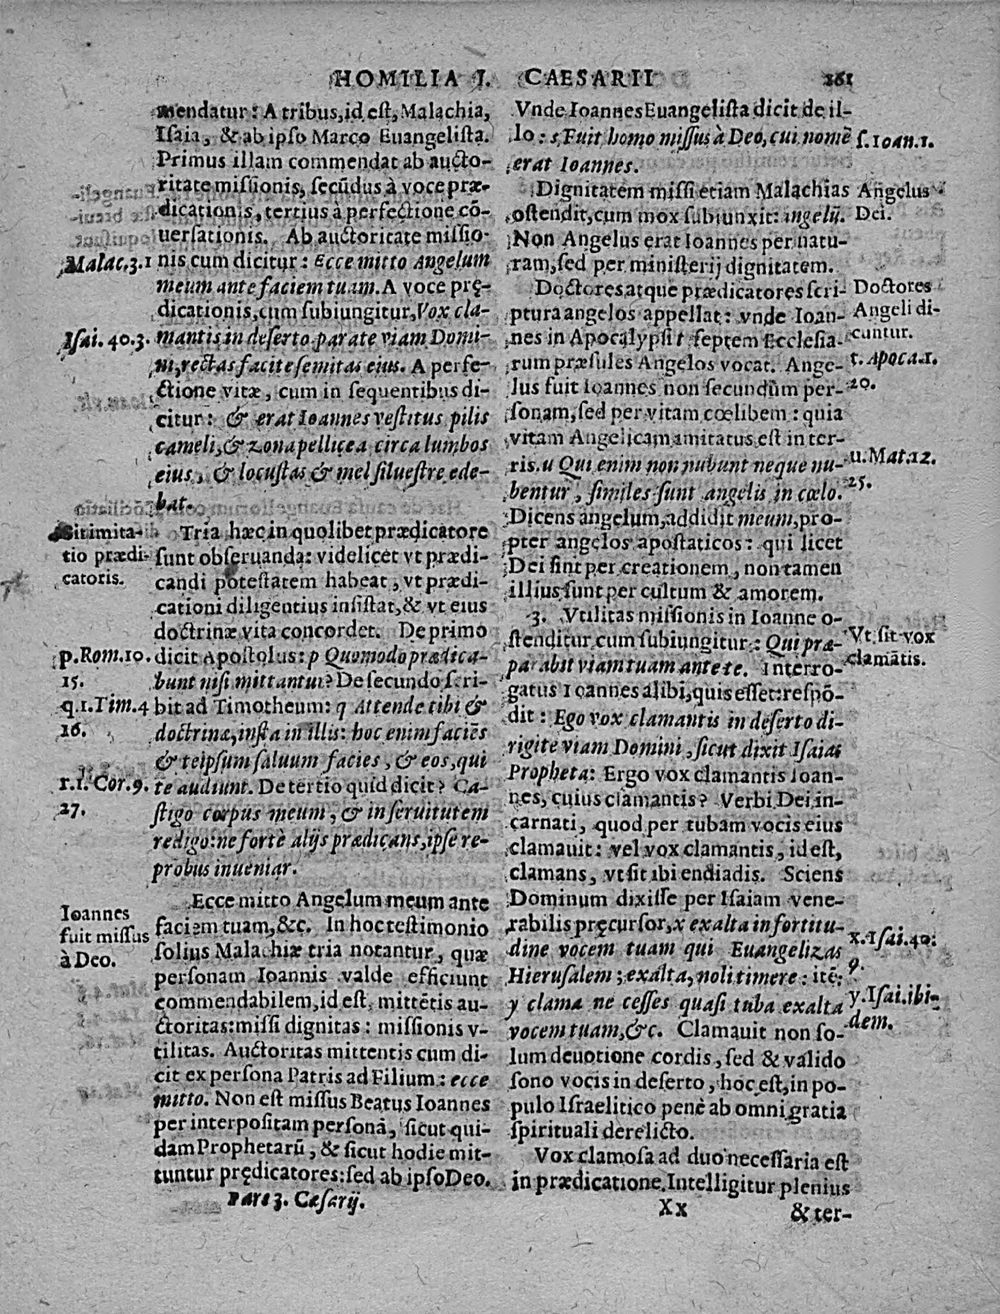 HOMILIA I. CAESARII 261
mendatur: A tribus, id est, Malachia,
Isaia, & ab ipso Marco Euangelista.
Primus illam commendat ab aucto-
ritate missionis, secūdus à voce præ-
dicationis, tertius à perfectione cō-
uersationis. Ab auctoritate missio-
Malac.3.1 nis cum dicitur: Ecce mitto Angelum
meum ante faciem tuam. A voce prę-
dicationis, cum subiungitur, Vox cla-
Isai. 40.3. mantis in deserto parate viam Domi-
ni, rectas facite semitas eius. A perfe-
ctione vitæ, cum in sequentibus di-
citur: & erat Ioannes vestitus pilis
cameli, & zona pellicea circa lumbos
eius, & locustas & mel siluestre ede-
bat.
Sit imita- Tria hæc in quolibet prædicatore
tio prædi- sunt obseruanda: videlicet vt prædi-
catoris. candi potestatem habeat, vt prædi-
cationi diligentius insistat, & vt eius
doctrinæ vita concordet. De primo
p.Rom.10. dicit Apostolus: p Quomodo prædica-
15. bunt nisi mittantur? De secundo scri-
q.1.Tim.4 bit ad Timotheum: q Attende tibi &
16. doctrinæ, insta in illis: hoc enim faciēs
& teipsum saluum facies, & eos, qui
r.1.Cor.9. te audiunt. De tertio quid dicit? Ca-
27. stigo corpus meum, & in seruitutem
redigo: ne fortè alijs prædicans, ipse re-
probus inueniar.
Ecce mitto Angelum meum ante
Ioannes faciem tuam, &c. In hoc testimonio
fuit missus solius Malachiæ tria notantur, quæ
à Deo. personam Ioannis valde efficiunt
commendabilem, id est, mittētis au-
ctoritas: missi dignitas: missionis v-
tilitas. Auctoritas mittentis cum di-
cit ex persona Patris ad Filium: ecce
mitto. Non est missus Beatus Ioannes
per interpositam personā, sicut qui-
dam Prophetarū, & sicut hodie mit-
tuntur prędicatores: sed ab ipso Deo.
Pars 3. Cæsarij.
Vnde Ioannes Euangelista dicit de il-
lo: s Fuit homo missus à Deo, cui nomē s.Ioan.1.
erat Ioannes.
Dignitatem missi etiam Malachias Angelus
ostendit, cum mox subiunxit: angelū. Dei.
Non Angelus erat Ioannes per natu-
ram, sed per ministerij dignitatem.
Doctores atque prædicatores scri- Doctores
ptura angelos appellat: vnde Ioan- Angeli di-
nes in Apocalypsi t septem Ecclesia- cuntur.
rum præsules Angelos vocat. Ange- t. Apoca.1.
lus fuit Ioannes non secundùm per- 20.
sonam, sed per vitam cœlibem: quia
vitam Angelicam imitatus est in ter-
ris. u Qui enim non nubunt neque nu- u.Mat.12.
bentur, similes sunt angelis in cœlo. 25.
Dicens angelum, addidit meum, pro-
pter angelos apostaticos: qui licet
Dei sint per creationem, non tamen
illius sunt per cultum & amorem.
3. Vtilitas missionis in Ioanne o-
stenditur cum subiungitur: Qui præ- Vt sit vox
parabit viam tuam ante te. Interro- clamātis.
gatus Ioannes alibi, quis esset: respō-
dit: Ego vox clamantis in deserto di-
rigite viam Domini, sicut dixit Isaias
Propheta: Ergo vox clamantis Ioan-
nes, cuius clamantis? Verbi Dei in-
carnati, quod per tubam vocis eius
clamauit: vel vox clamantis, id est,
clamans, vt sit ibi endiadis. Sciens
Dominum dixisse per Isaiam vene-
rabilis pręcursor, x exalta in fortitu-
dine vocem tuam qui Euangelizas x.Isai.40.
Hierusalem; exalta, noli timere: itē: 9.
y clama ne cesses quasi tuba exalta y.Isai.ibi-
vocem tuam, &c. Clamauit non so- dem.
lum deuotione cordis, sed & valido
sono vocis in deserto, hoc est, in po-
pulo Israelitico penè ab omni gratia
spirituali derelicto.
Vox clamosa ad duo necessaria est
in prædicatione. Intelligitur plenius
Xx & ter-